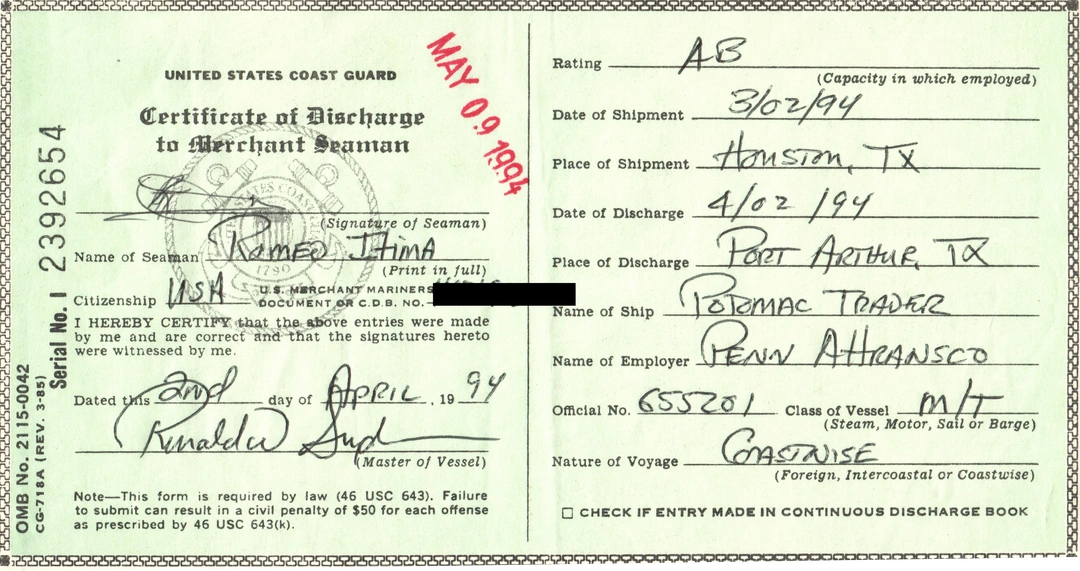 UNITED STATES COAST GUARD
Certificate of Discharge
to Merchant Seaman
MAY 09 1994
(Signature of Seaman)
Name of Seaman Romeo Itima
(Print in full)
Citizenship USA U.S. MERCHANT MARINERS
DOCUMENT OR C.D.B. NO.
I HEREBY CERTIFY that the above entries were made
by me and are correct and that the signatures hereto
were witnessed by me.
Dated this 2nd day of APRIL, 1994
(Master of Vessel)
Note—This form is required by law (46 USC 643). Failure
to submit can result in a civil penalty of $50 for each offense
as prescribed by 46 USC 643(k).
OMB No. 2115-0042
CG-718A (REV. 3-85)
Serial No. I 2392654
Rating AB
(Capacity in which employed)
Date of Shipment 3/02/94
Place of Shipment Houston, TX
Date of Discharge 4/02/94
Place of Discharge PORT ARTHUR, TX
Name of Ship POTOMAC TRADER
Name of Employer PENN ATTRANSCO
Official No. 655201 Class of Vessel M/T
(Steam, Motor, Sail or Barge)
Nature of Voyage COASTWISE
(Foreign, Intercoastal or Coastwise)
CHECK IF ENTRY MADE IN CONTINUOUS DISCHARGE BOOK